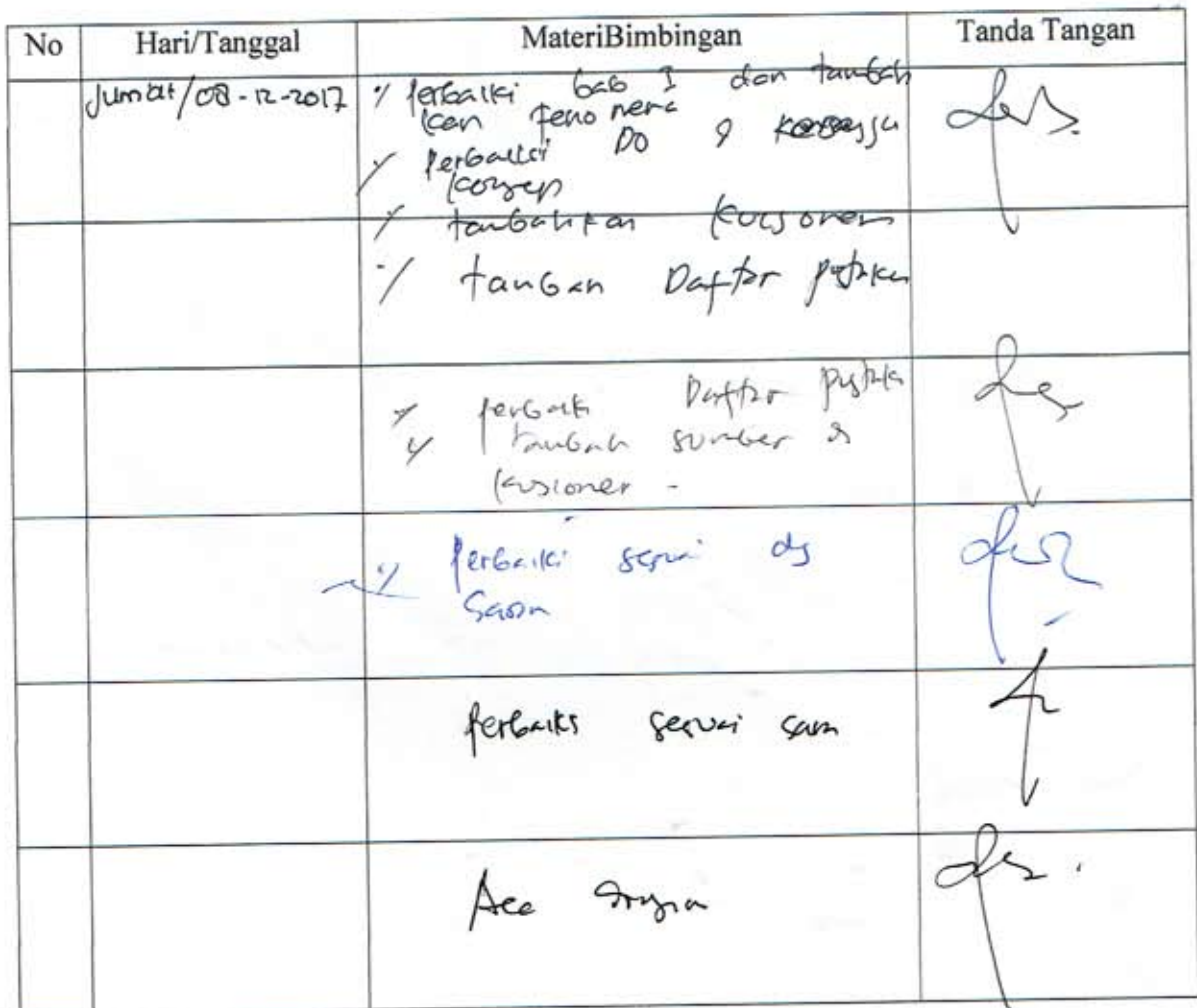 No Hari/Tanggal MateriBimbingan Tanda Tangan
Jumat/08-12-2017 perbaiki bab I dan tambah
kan fenomena
perbaiki DO &
konsep
tambahkan kuisoner
tamban Daftar pustaka
perbaiki Daftar pustaka
tambah sumber &
kusioner -
perbaiki sesuai dg
saran
perbaiki sesuai saran
Acc